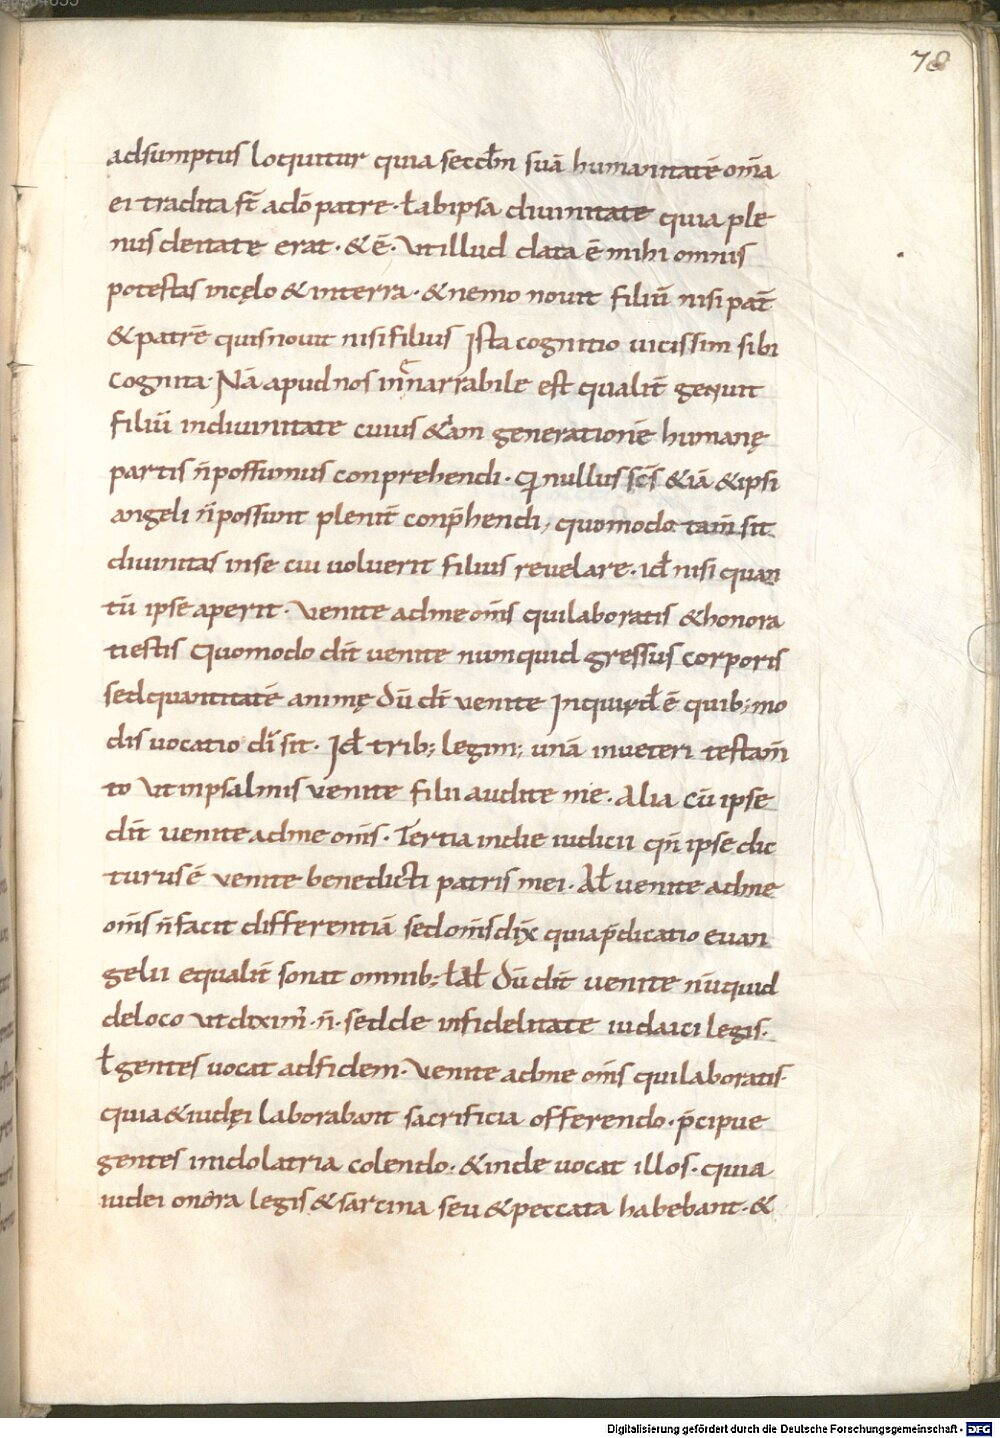 78
adsumptus loquitur quia secdm̄ suā humanitatē om̄a
ei tradita st̄ adō patre · ł abipsa diuinitate quia ple
nus deitate erat · & ē · Ut illud data ē mihi omnis
potestas incęlo & interra · & nemo nouit filiū nisi pat̄
& patrē quis nouit nisi filius Ista cognitio uicissim sibi
cognita · Nā apud nos innarrabile est qualit̄ genuit
filiū indiuinitate cuius &iam generationē humanę
partis n̄ possumus conprehendi · Qi nullus sc̄s &iā & ipsi
angeli n̄ possunt plenit̄ conp̄hendi, quomodo tam̄ sit
diuinitas inse cui uoluerit filius reuelare · id̄ nisi quan
tū ipse aperit · Uenite adme om̄s qui laboratis & honora
ti estis Quomodo dīt uenite numquid gressus corporis
sed quantitatē animę Dū dīt uenite Inquid̄ ē quib; mo
dis uocatio dī sit · Id̄ trib; legim; unā inueteri testam̄
to Ut inpsalmis uenite filii audite me · Alia cū ipse
dīt uenite adme om̄s · Tertia indie iudicii qn̄ ipse dic
turus ē uenite benedicti patris mei · Ał uenite adme
om̄s n̄ facit differentiā sed om̄s dix̄ quia p̄dicatio euan
gelii equalit̄ sonat omnib; ł ał Dū dīt uenite nūquid
deloco ut dixim̄ · n̄ · sed de infidelitate iudaici legis ·
ł gentes uocat adfidem · Uenite adme om̄s qui laboratis ·
quia & iudęi laborabant sacrificia offerendo · p̄cipue
gentes inidolatria colendo · & inde uocat illos · quia
iudei onera legis & sarcina seu & peccata habebant · &
Digitalisierung gefördert durch die Deutsche Forschungsgemeinschaft - DFG